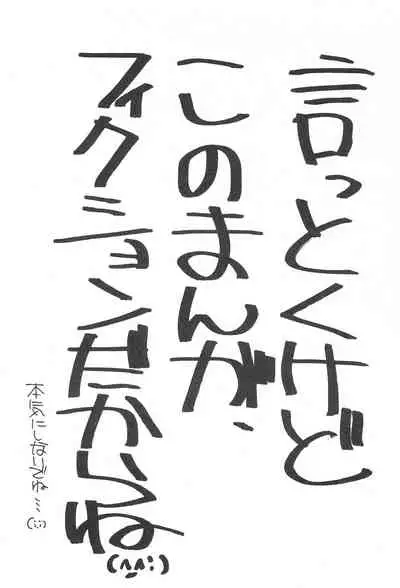 言っとくけど
このまんが、
フィクションだからね
(^^;)
本気にしないでね…(;;)